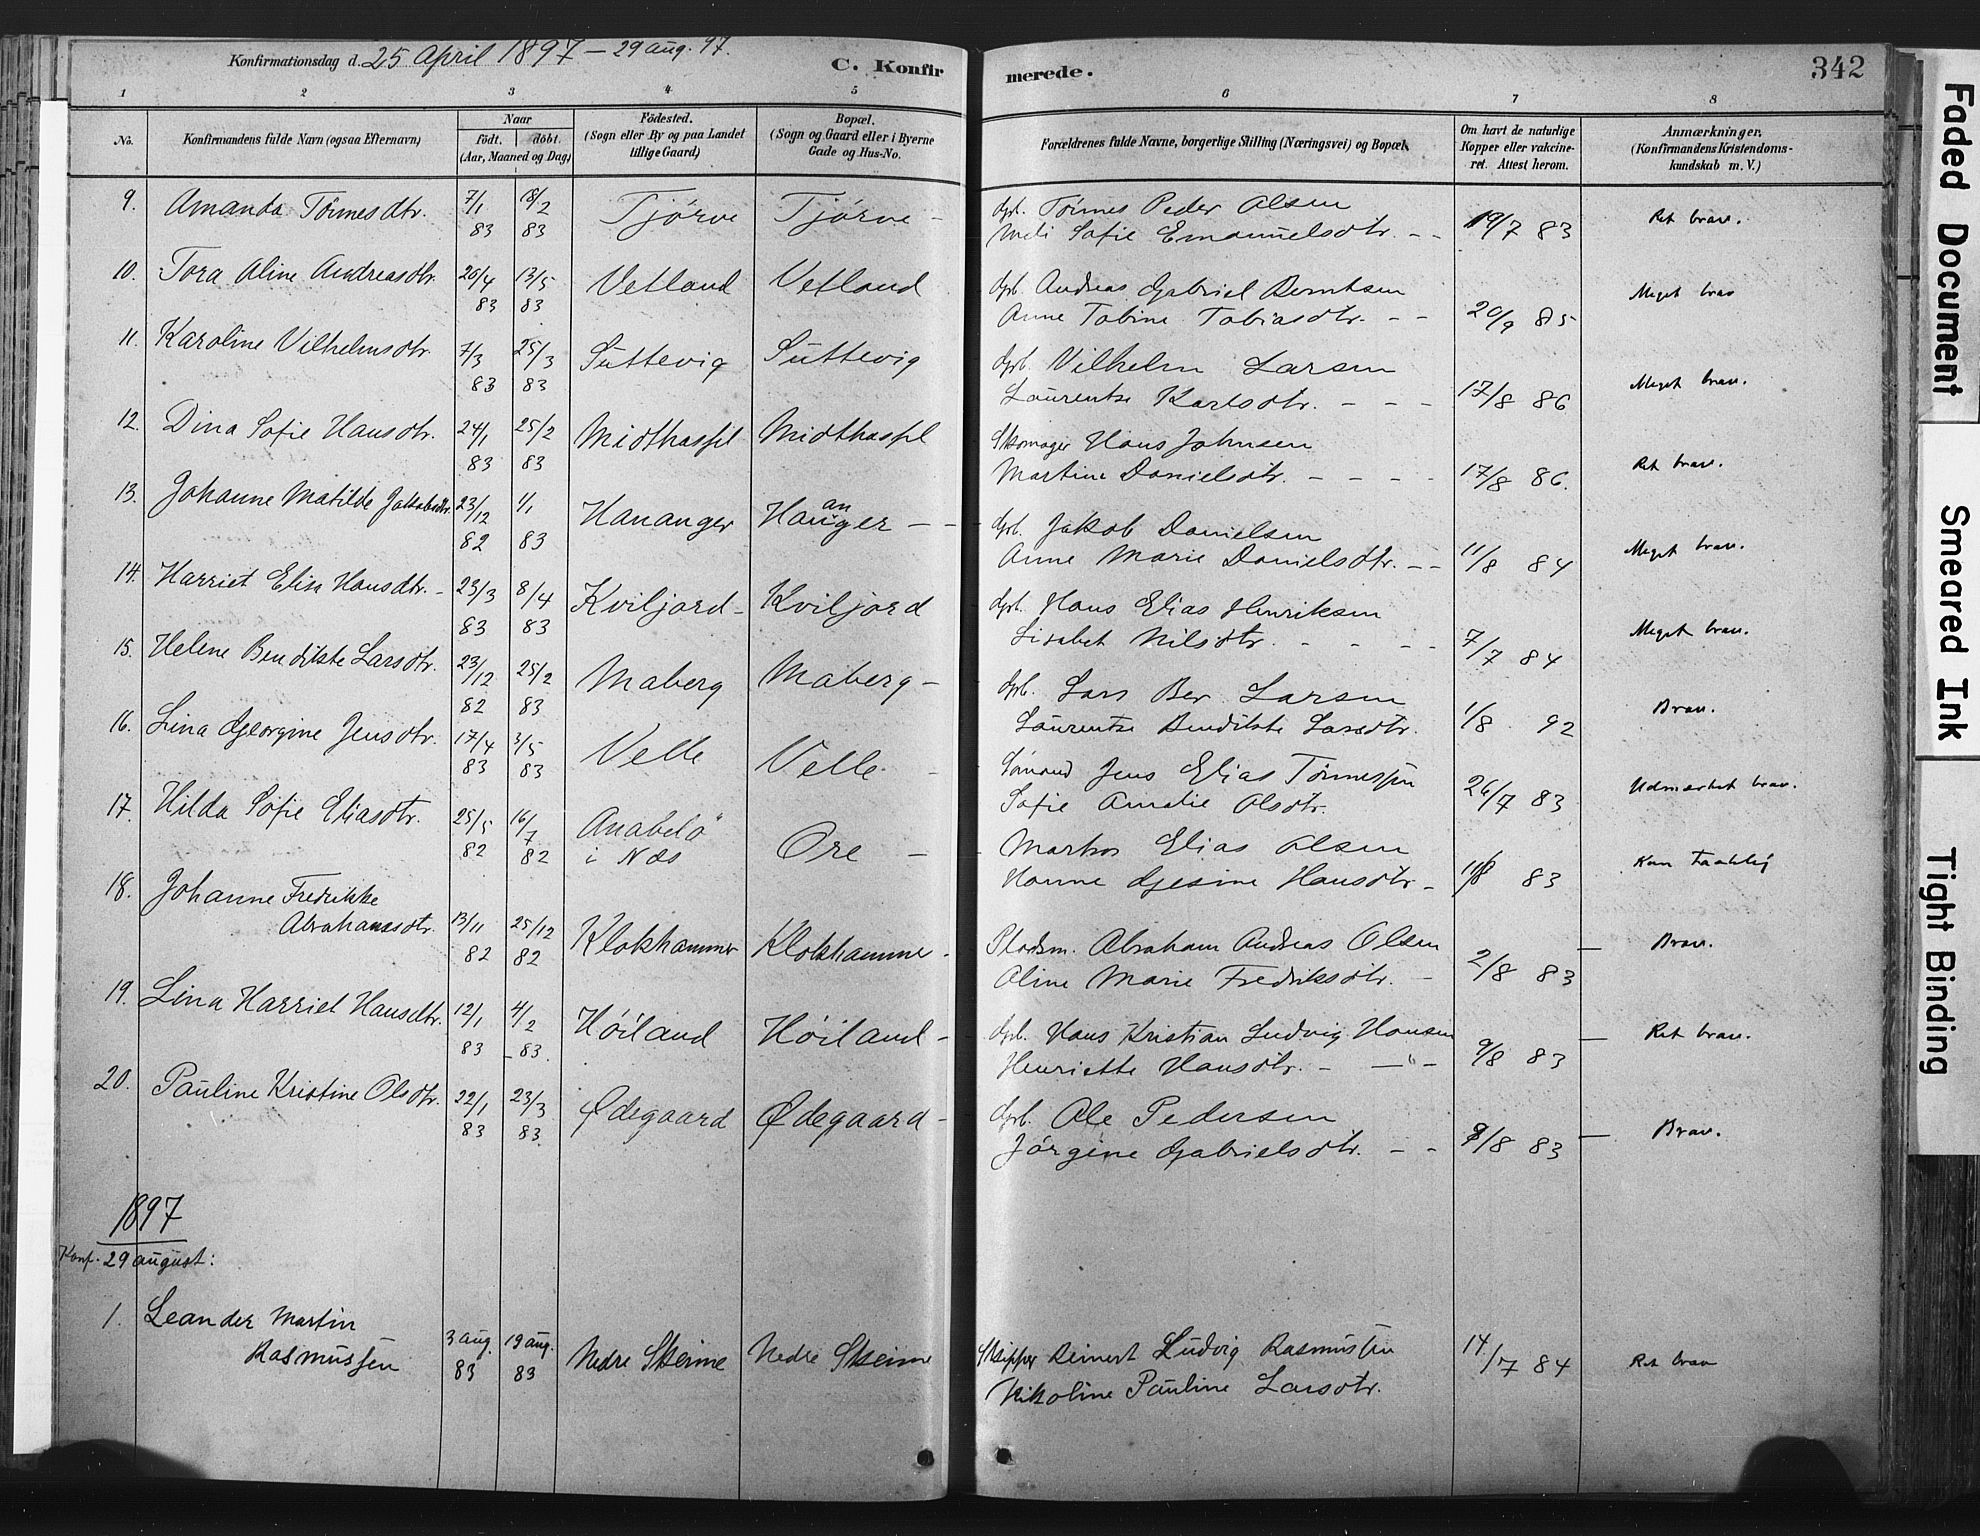 Konfirmationsdag d. 25 April 1897 – 29 aug. 97.
C. Konfirmerede.
342
1 2 3 4 5 6 7 8
No.
Konfirmandens fulde Navn (ogsaa Efternavn)
Naar født. døbt. (Aar, Maaned og Dag)
Fødested. (Sogn eller By og paa Landet tillige Gaard)
Bopæl. (Sogn og Gaard eller i Byerne Gade og Hus-No.
Forældrenes fulde Navne, borgerlige Stilling (Næringsvei) og Bopæl.
Om havt de naturlige Kopper eller vakcineret. Attest herom.
Anmærkninger. (Konfirmandens Kristendomskundskab m. V.)
9. Amanda Tönnesdtr. 7/1 83 18/2 83 Tjörve Tjörve – Gbr. Tönnes Peder Olsen
Meli Sofie Emanuelsdtr. – – 19/7 83 Ret brav.
10. Tora Aline Andreasdtr. 20/4 83 13/5 83 Vetland Vetland Gbr. Andreas Gabriel Berntsen
Anne Tobine Tobiasdtr. – – 20/9 85 Meget brav
11. Karoline Vilhelmsdtr. 7/3 83 25/3 83 Suttevig Suttevig Gbr. Vilhelm Larsen
Laurentse Karlsdtr. – – – 17/8 86 Meget brav.
12. Dina Sofie Hansdtr. 24/1 83 25/2 83 Midthassel Midthassel Skomager Hans Johnsen
Martine Danielsdtr. – – – – 17/8 86. Ret brav.
13. Johanne Matilde Jakobsdtr. 23/12 82 1/1 83 Hananger Hananger – – Gbr. Jakob Danielsen
Anne Marie Danielsdtr. – – 11/8 84 Meget brav.
14. Harriet Elisa Hansdtr. – 23/3 83 8/4 83 Kviljord – Kviljord Gbr. Hans Elias Henriksen
Lisabet Nilsdtr. – – – – 7/7 84 Meget brav.
15. Helene Bendikte Larsdtr. 23/12 82 25/2 83 Maberg Maberg – Gbr. Lars Ber Larsen
Laurentse Bendikte Larsdtr. 1/8 92 Brav.
16. Lina Georgine Jensdtr. 17/4 83 3/5 83 Velle Velle – Sömand Jens Elias Tönnessen
Sofie Amalie Olsdtr. 26/7 83 Udmærket brav.
17. Hilda Sofie Eliasdtr. 25/5 82 16/7 82 Anabelö i Næs Ore – Markus Elias Olsen
Hanne Gjesine Hansdtr – 83 Kan taalelig
18. Johanne Fredrikke
Abrahamsdtr. 13/11 82 25/12 82 Klokhammer Klokhammer – Pladsm. Abraham Andreas Olsen
Aline Marie Fredriksdtr. – 2/8 83 – Brav.
19. Lina Harriet Hansdtr. 12/1 83 4/2 83. Höiland Höiland – Gbr. Hans Kristian Ludvig Hansen
Henriette Hansdtr. – – " – 9/8 83 – Ret brav.
20. Pauline Kristine Olsdtr. 22/1 83 23/3 83 Ødegaard Ødegaard – Gbr. Ole Pedersen
Jörgine Gabrielsdtr. – – 9/8 83 – Brav.
1897
Konf. 29 august:
1. Leander Martin
Rasmussen 3 aug. 83 19 aug. 83 Nedre Skeime Nedre Skeime Skipper Reinert Ludvig Rasmussen
Nikoline Pauline Larsdtr. 14/7 84 Ret brav
Faded Document
Smeared Ink
Tight Binding